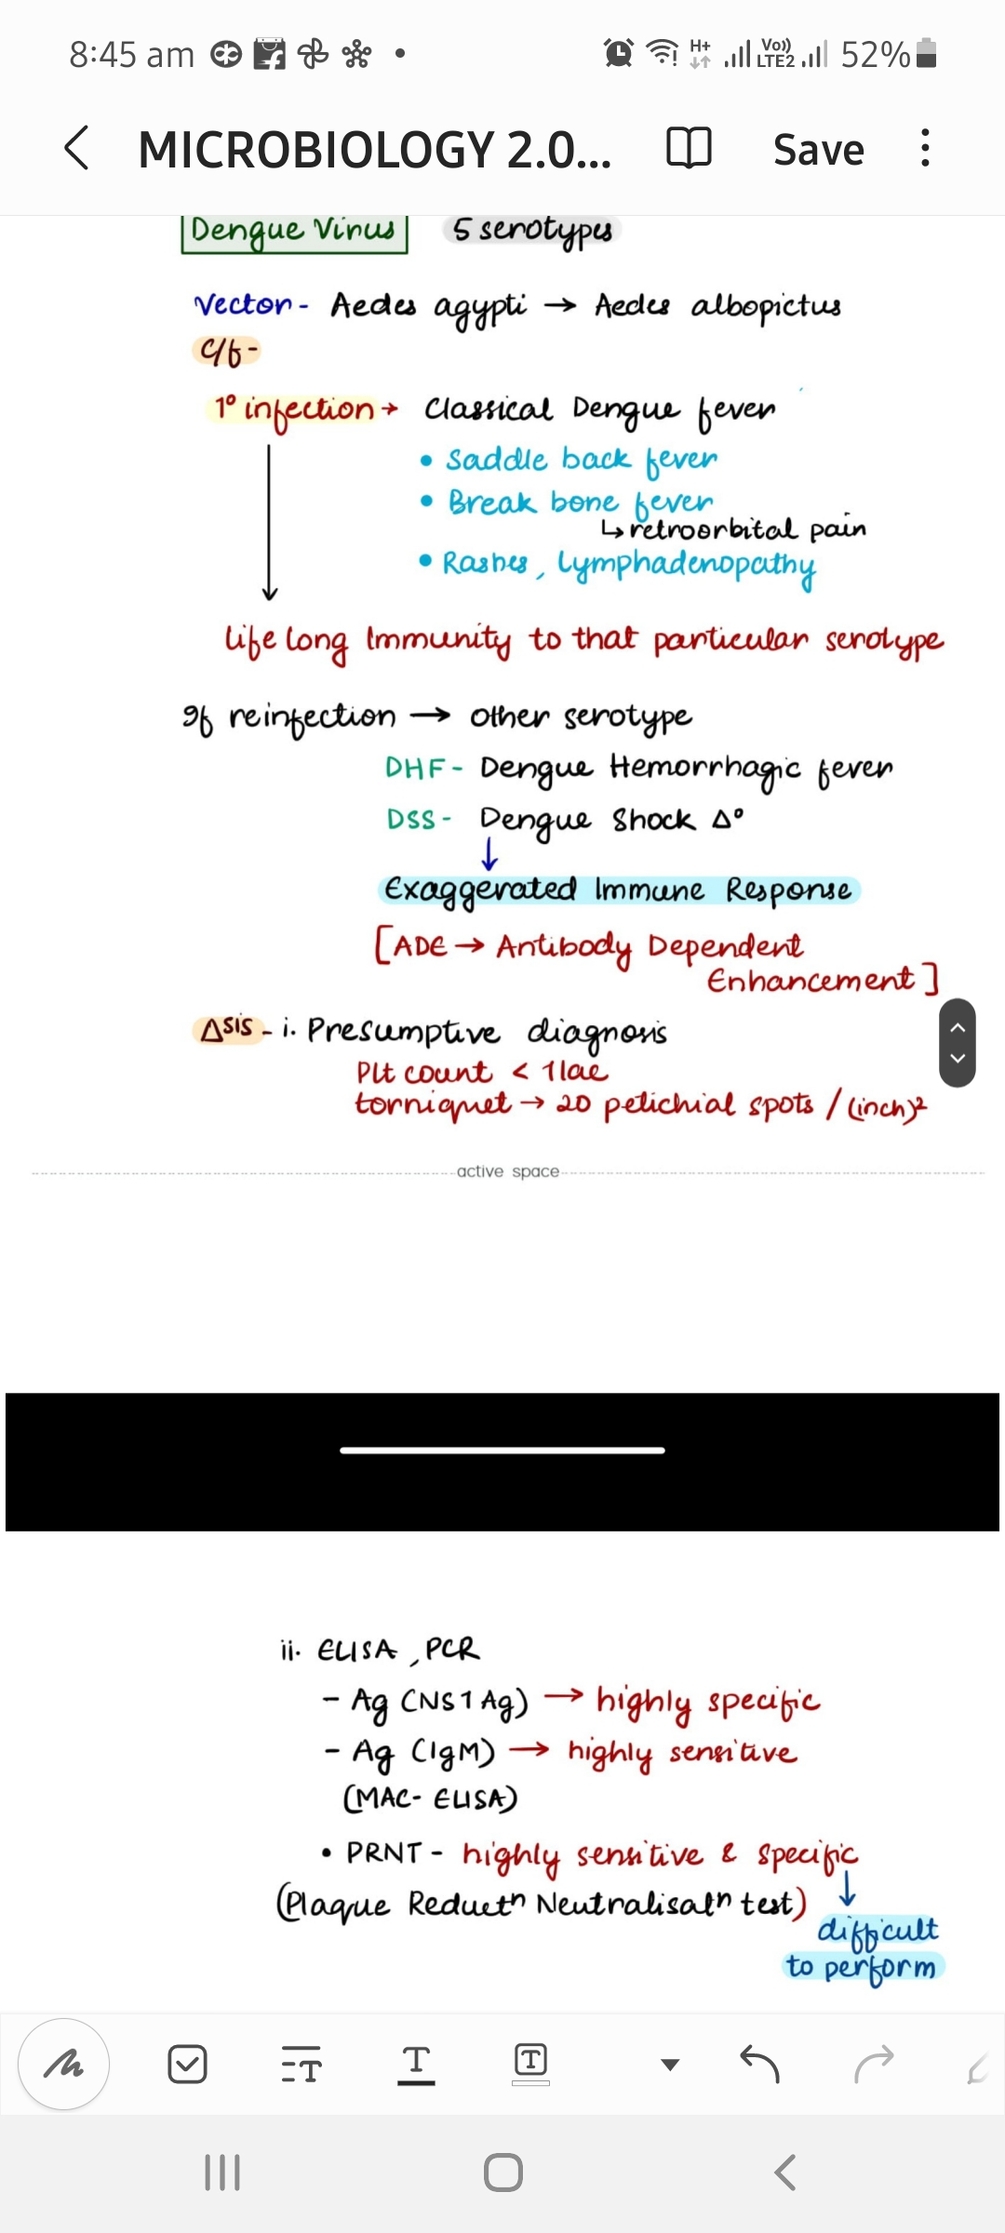 8:45 am
H+ Vo)) LTE2 52%
MICROBIOLOGY 2.0... Save
Dengue Virus 5 serotypes
Vector - Aedes agypti → Aedes albopictus
C/f -
1° infection → Classical Dengue fever
• Saddle back fever
• Break bone fever
↳ retroorbital pain
• Rashes, Lymphadenopathy
Life long Immunity to that particular serotype
If reinfection → other serotype
DHF - Dengue Hemorrhagic fever
DSS - Dengue Shock Δ°
↓
Exaggerated Immune Response
[ADE → Antibody Dependent
Enhancement]
Δsis - i. Presumptive diagnosis
Plt count < 1 lac
torniquet → 20 petichial spots / (inch)²
active space
ii. ELISA, PCR
- Ag (NS1 Ag) → highly specific
- Ag (IgM) → highly sensitive
(MAC- ELISA)
• PRNT - highly sensitive & specific
(Plaque Reductn Neutralisatn test) ↓
difficult
to perform